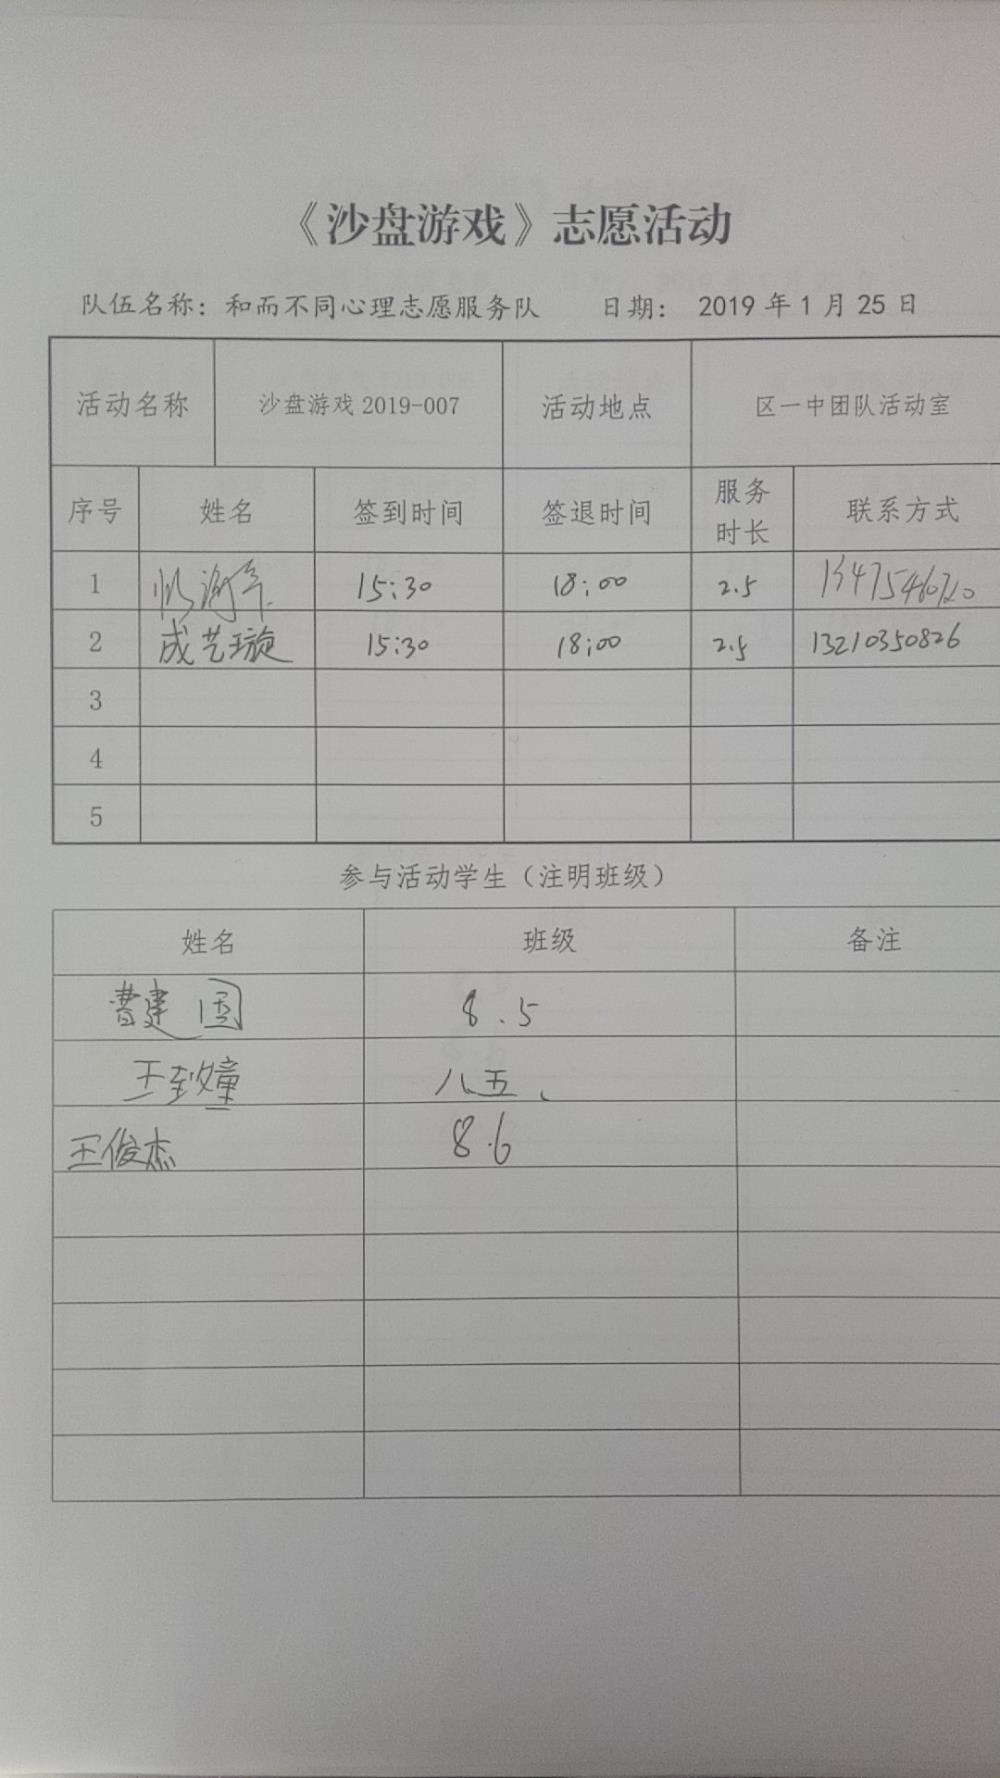 《沙盘游戏》志愿活动
队伍名称：和而不同心理志愿服务队 日期： 2019 年 1 月 25 日
活动名称 沙盘游戏 2019-007 活动地点 区一中团队活动室
序号 姓名 签到时间 签退时间 服务时长 联系方式
1 15:30 18:00 2.5
2 成艺璇 15:30 18:00 2.5 13210350826
3
4
5
参与活动学生（注明班级）
姓名 班级 备注
曹建国 8.5
王 八五、
王俊杰 8.6